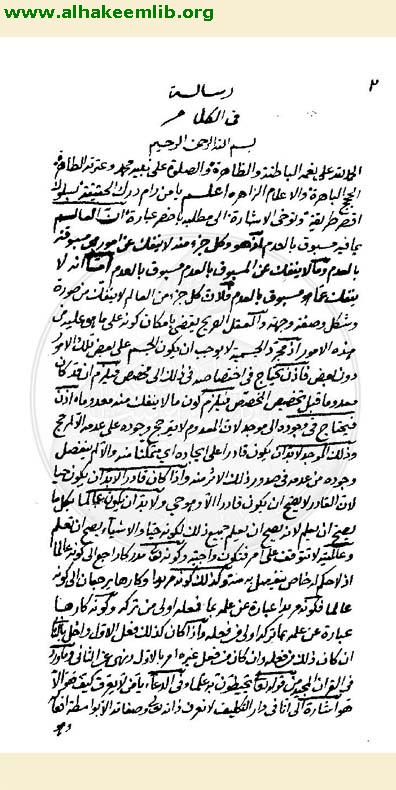 www.alhakeemlib.org
٢
رسالة
فى الكلام
بسم الله الرحمن الرحيم
الحمد لله على نعمه الباطنة والظاهرة والصلوة على نبيه محمد وعترته الطاهرة
الحجج الباهرة والاعلام الزاهرة اعلم يا من رام درك الحقيقة بسلوك
اقصر طريقة وتوخى الاشارة الى مطلبه باخصر عبارة ان العالم
بما فيه مسبوق بالعدم وكل جزء منه لا ينفك عن امور هى مسبوقة
بالعدم وما لا ينفك عن المسبوق بالعدم مسبوق بالعدم اما انه لا
ينفك عما هو مسبوق بالعدم فلان كل جزء من العالم لا ينفك من صورة
وشكل وصفة وجهة والعقل الصريح يقضى بامكان كونه على ما هو عليه من
هذه الامور اذ مجرد الجسمية لا يوجب ان يكون الجسم على بعض تلك الامور
دون بعض فاذن يحتاج فى اختصاصه فى ذلك الى مخصص فيلزم ان قد كان
معدوما قبل تخصيص المخصص فيلزم كون ما لا ينفك منه معدوما فاذن
فيحتاج فى وجوده الى موجد لان المعدوم لا يترجح وجوده على عدمه الا لمرجح
وذلك الموجد لا بد ان يكون قادرا على ايجاده اى متمكنا منه والا لم ينفصل
وجوده من عدمه فى صدور ذلك الاثر منه واذا كان قادرا لا بد ان يكون حيا
لان القادر لا يصح ان يكون قادرا الا وهو حى ولا بد ان يكون عالما بكل ما
يصح ان يعلم لانه يصح ان يعلم جميع ذلك لكونه حيا والاشياء يصح ان تعلم
وعالميته لا تتوقف على امر فتكون واجبة وكونه تعالى مدركا راجع الى كونه عالما
اذ لا حكم له خاص ينفصل به منه وكذلك كونه مريدا وكارها يرجعان الى كونه
عالما فكونه مريدا عبارة عن علمه بما فعله اولى من تركه وكونه كارها
عبارة عن علمه بما تركه اولى من فعله واذا كان كذلك فعل الاول واخل بالثانى
ان كان ذلك من فعله وان كان من فعل غيره امر بالاول ونهى عن الثانى وما ورد
فى القران المجيد من قوله تعالى يحيطون به علما وفى الدعاء يا من لا يعرف كيف هو الا
هو اشارة الى انا فى دار التكليف لا نعرف ذاته تعالى وصفاته الا بواسطة افعاله